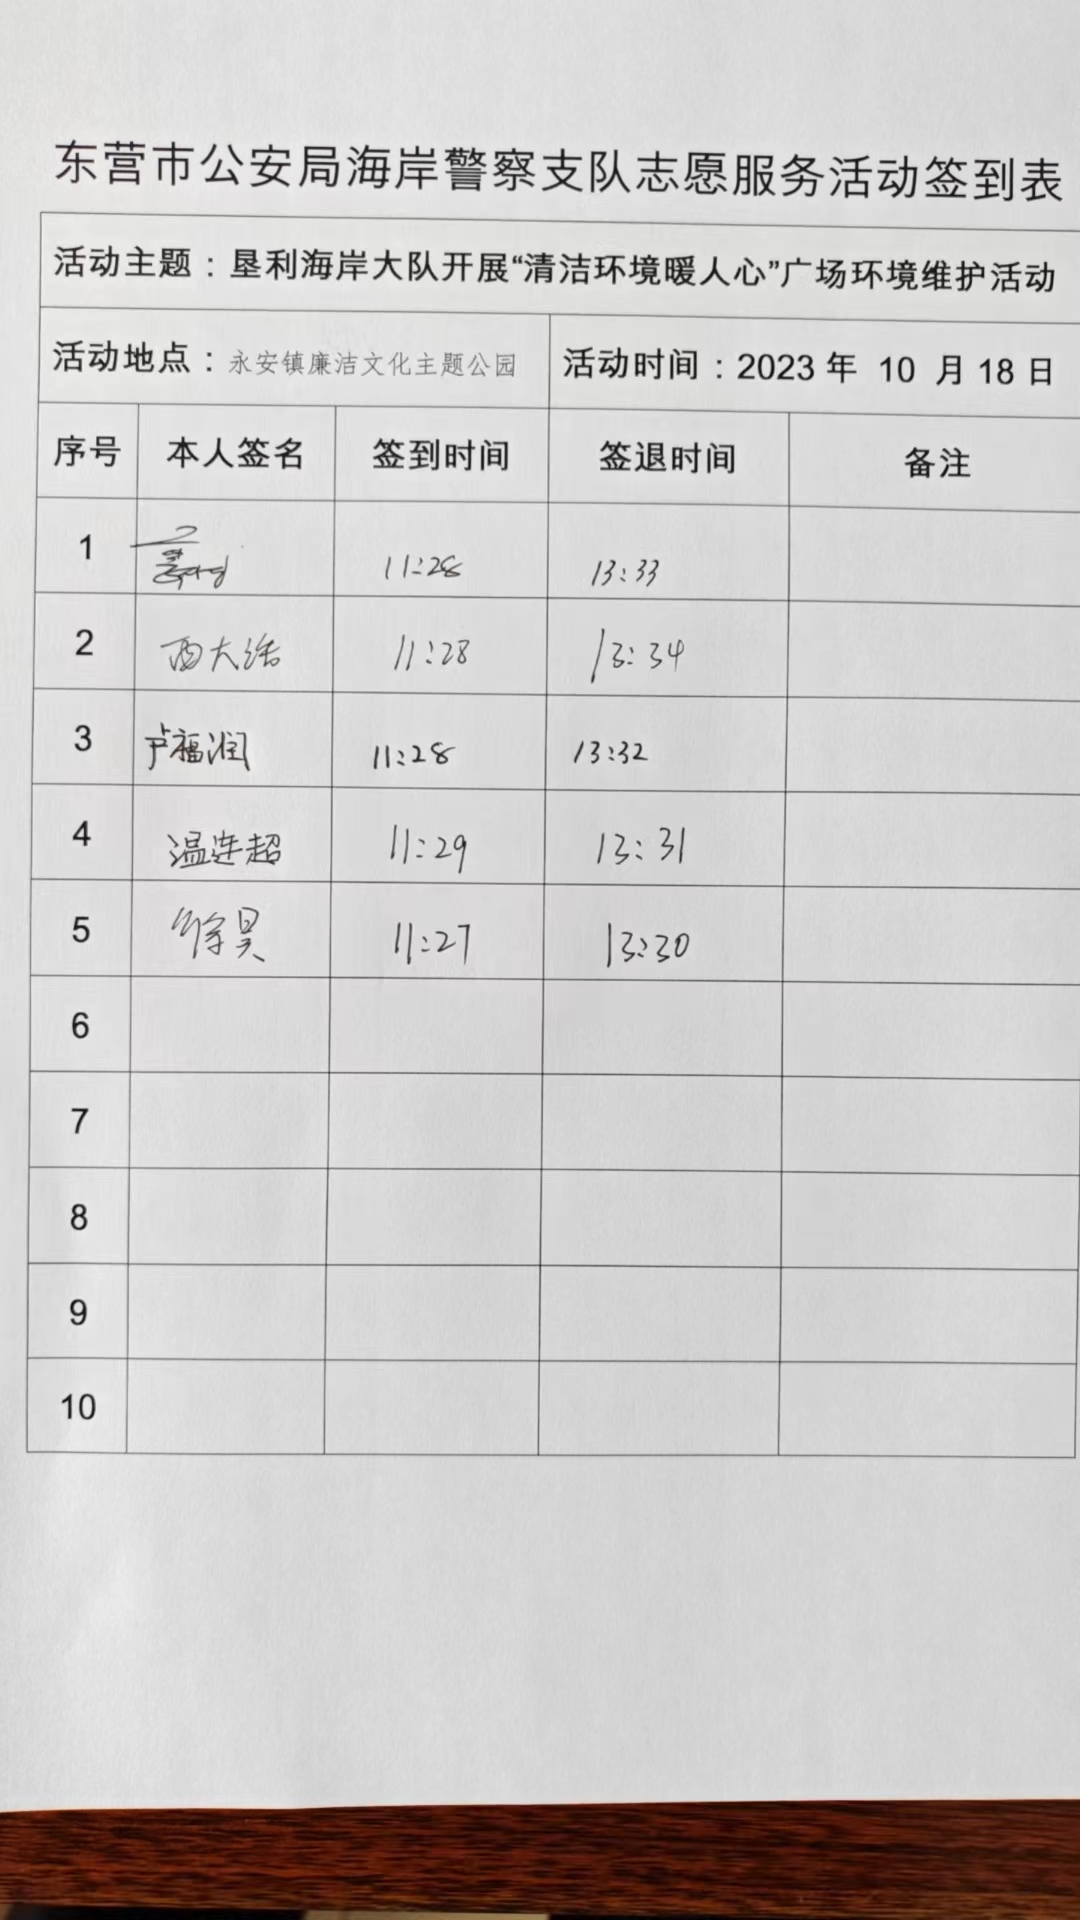 东营市公安局海岸警察支队志愿服务活动签到表
活动主题：垦利海岸大队开展“清洁环境暖人心”广场环境维护活动
活动地点：永安镇廉洁文化主题公园 活动时间：2023 年 10 月 18 日
序号 本人签名 签到时间 签退时间 备注
1 11:28 13:33
2 西大浩 11:28 13:34
3 卢福润 11:28 13:32
4 温连超 11:29 13:31
5 徐昊 11:27 13:30
6
7
8
9
10